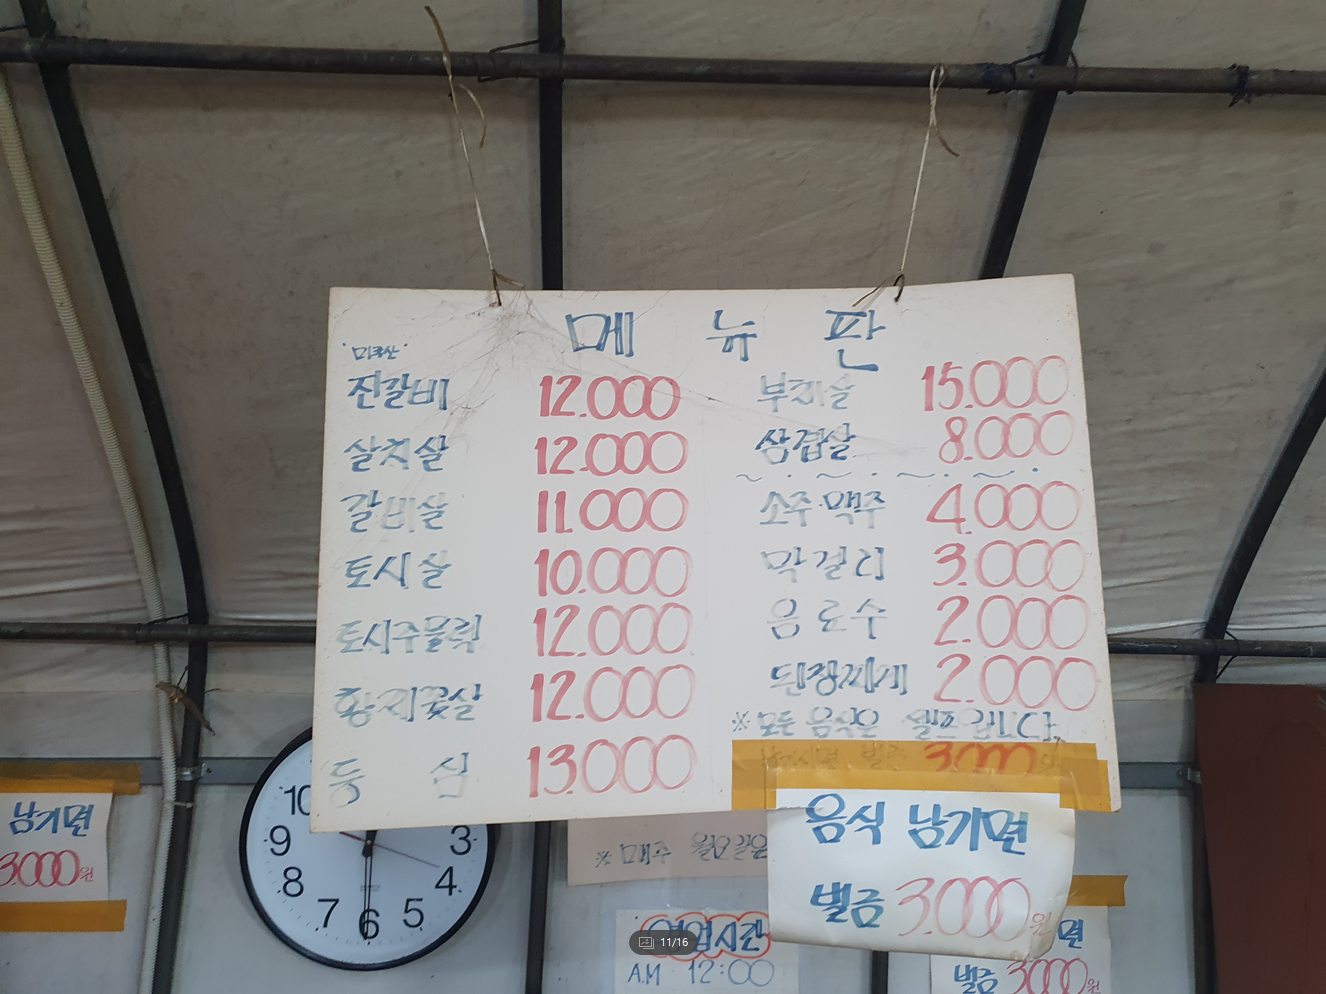 메 뉴 판
"미국산"
진갈비 12.000
살치살 12.000
갈비살 11.000
토시살 10.000
토시주물럭 12.000
황제꽃살 12.000
등 심 13.000
부채살 15.000
삼겹살 8.000
소주·맥주 4.000
막걸리 3.000
음료수 2.000
된장찌게 2.000
※ 모든 음식은 셀프입니다
벌금 3.000원
음식 남기면
벌금 3.000원
남기면
3.000원
※ 매주 월요일은
영업시간
A.M 12:00
면
벌금 3.000원
10
9
8
7
6
5
4
3
11/16